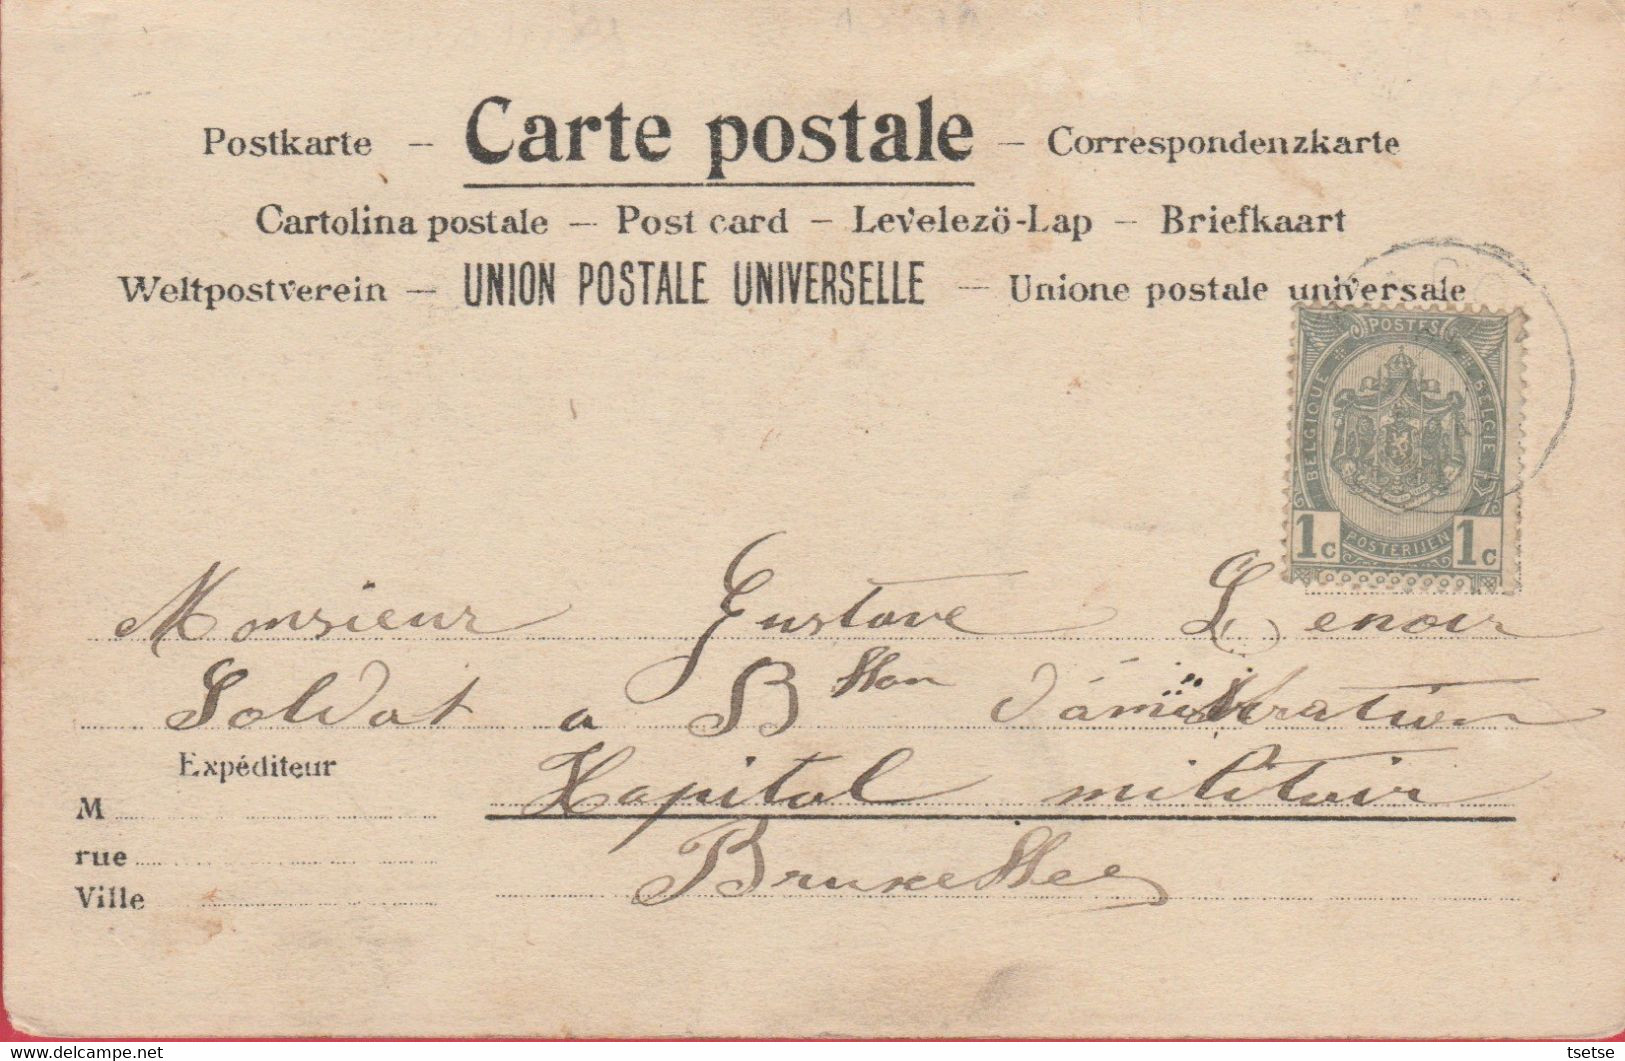 Postkarte – Carte postale – Correspondenzkarte
Cartolina postale – Post card – Levelezö-Lap – Briefkaart
Weltpostverein – UNION POSTALE UNIVERSELLE – Unione postale universale
POSTES
BELGIQUE BELGIE
1c POSTERIJEN 1c
Monsieur Gustave Lenoir
Soldat a
Expéditeur
Hapital militair
M
rue
Bruxelles
Ville
www.delcampe.net tsetse